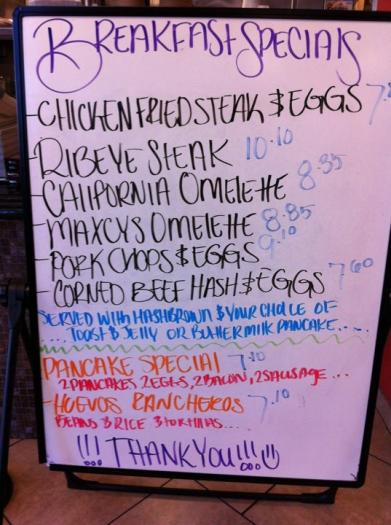 BREAKFAST SPECIALS
-CHICKEN FRIED STEAK & EGGS
-RIBEYE STEAK 10.10
-CALIFORNIA OMELETTE 8.35
-MAXCYS OMELETTE 8.85
-PORK CHOPS & EGGS 9.10
-CORNED BEEF HASH & EGGS 7.60
SERVED WITH HASHBROWN & YOUR CHOICE OF
.... TOOST & JELLY OR BUTTERMILK PANCAKE.....
PANCAKE SPECIAL 7.10
2 PANCAKES, 2 EGGS, 2 BACON, 2 SAUSAGE...
-HUEVOS RANCHEROS 7.10
BEANS & RICE 3 TORTILLAS....
!!! THANK YOU!!!